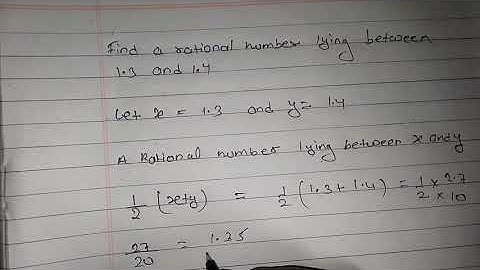 Find a rational number lying between
1.3 and 1.4
Let x = 1.3 and y = 1.4
A Rational number lying between x and y
1/2 (x+y) = 1/2 (1.3 + 1.4) = 1/2 × 2.7/10
27/20 = 1.35